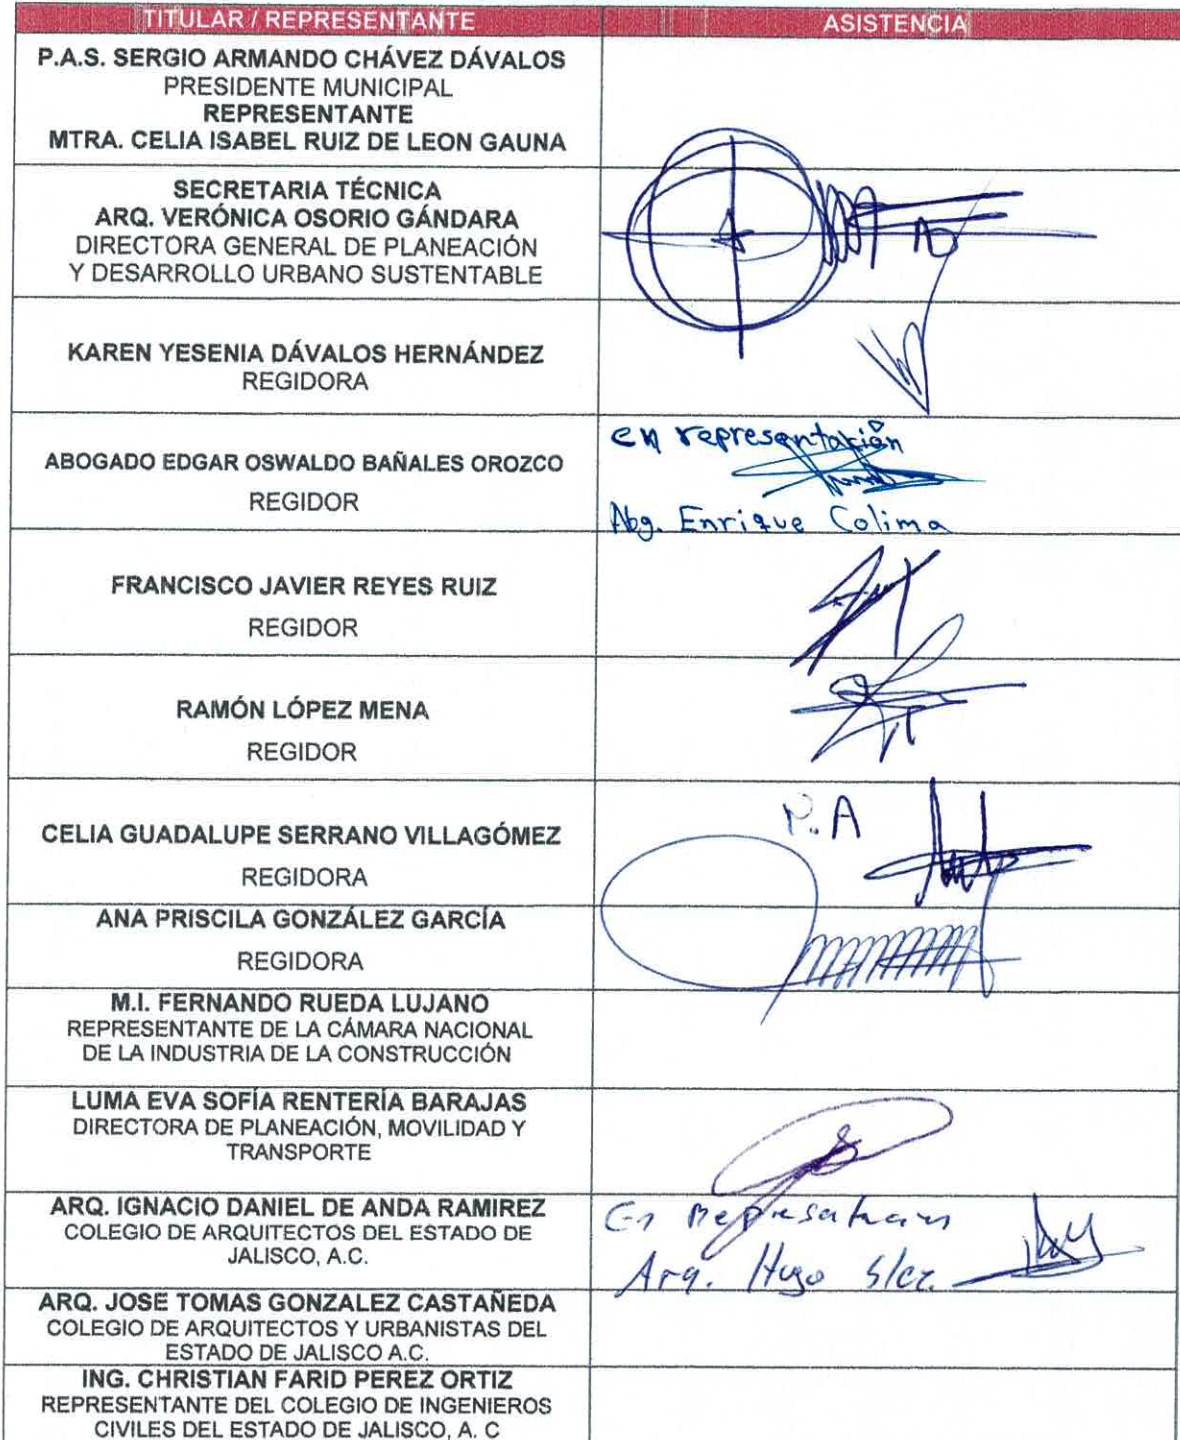 TITULAR / REPRESENTANTE
ASISTENCIA
P.A.S. SERGIO ARMANDO CHÁVEZ DÁVALOS
PRESIDENTE MUNICIPAL
REPRESENTANTE
MTRA. CELIA ISABEL RUIZ DE LEON GAUNA
SECRETARIA TÉCNICA
ARQ. VERÓNICA OSORIO GÁNDARA
DIRECTORA GENERAL DE PLANEACIÓN
Y DESARROLLO URBANO SUSTENTABLE
KAREN YESENIA DÁVALOS HERNÁNDEZ
REGIDORA
ABOGADO EDGAR OSWALDO BAÑALES OROZCO
REGIDOR
en representación
Abg. Enrique Colima
FRANCISCO JAVIER REYES RUIZ
REGIDOR
RAMÓN LÓPEZ MENA
REGIDOR
CELIA GUADALUPE SERRANO VILLAGÓMEZ
REGIDORA
P.A
ANA PRISCILA GONZÁLEZ GARCÍA
REGIDORA
M.I. FERNANDO RUEDA LUJANO
REPRESENTANTE DE LA CÁMARA NACIONAL
DE LA INDUSTRIA DE LA CONSTRUCCIÓN
LUMA EVA SOFÍA RENTERÍA BARAJAS
DIRECTORA DE PLANEACIÓN, MOVILIDAD Y
TRANSPORTE
ARQ. IGNACIO DANIEL DE ANDA RAMIREZ
COLEGIO DE ARQUITECTOS DEL ESTADO DE
JALISCO, A.C.
En
Arq. Hugo
ARQ. JOSE TOMAS GONZALEZ CASTAÑEDA
COLEGIO DE ARQUITECTOS Y URBANISTAS DEL
ESTADO DE JALISCO A.C.
ING. CHRISTIAN FARID PEREZ ORTIZ
REPRESENTANTE DEL COLEGIO DE INGENIEROS
CIVILES DEL ESTADO DE JALISCO, A. C